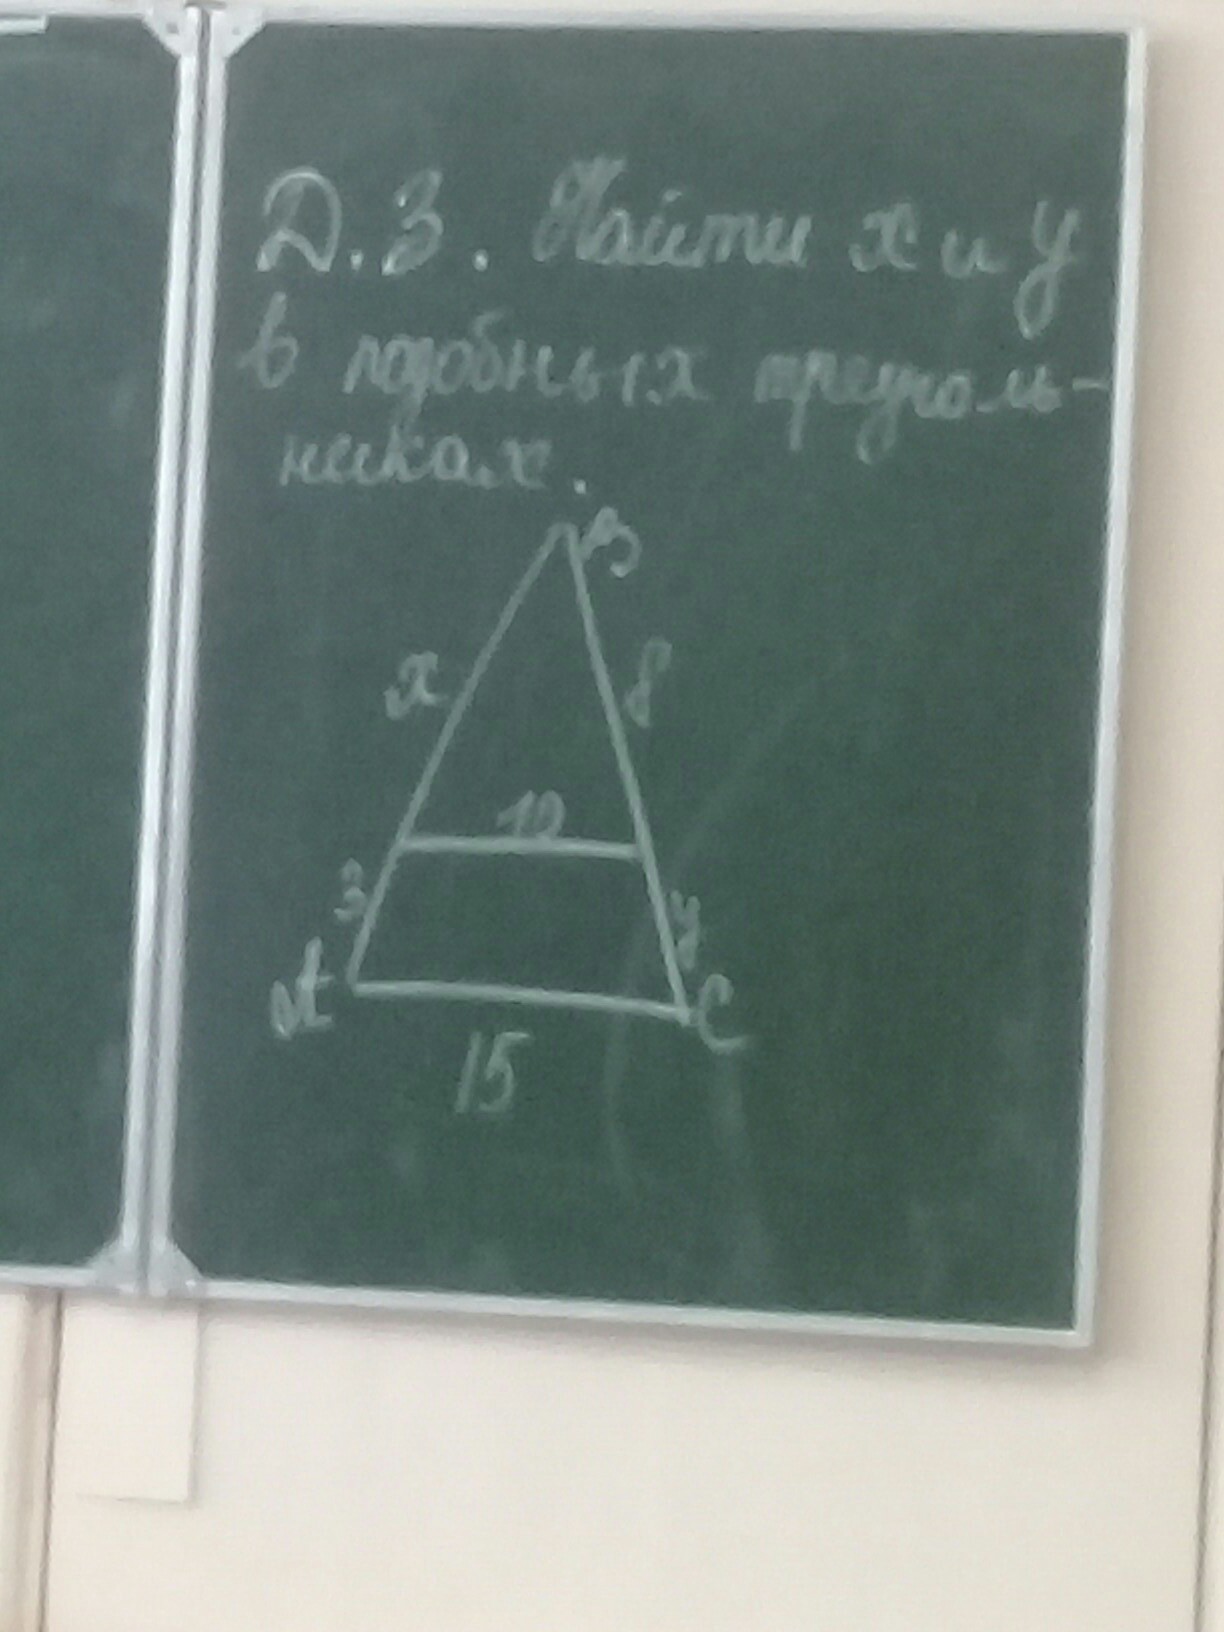 Д.З. Найти x и y
в подобных треуголь-
никах.
B
x 8
10
3 y
A C
15